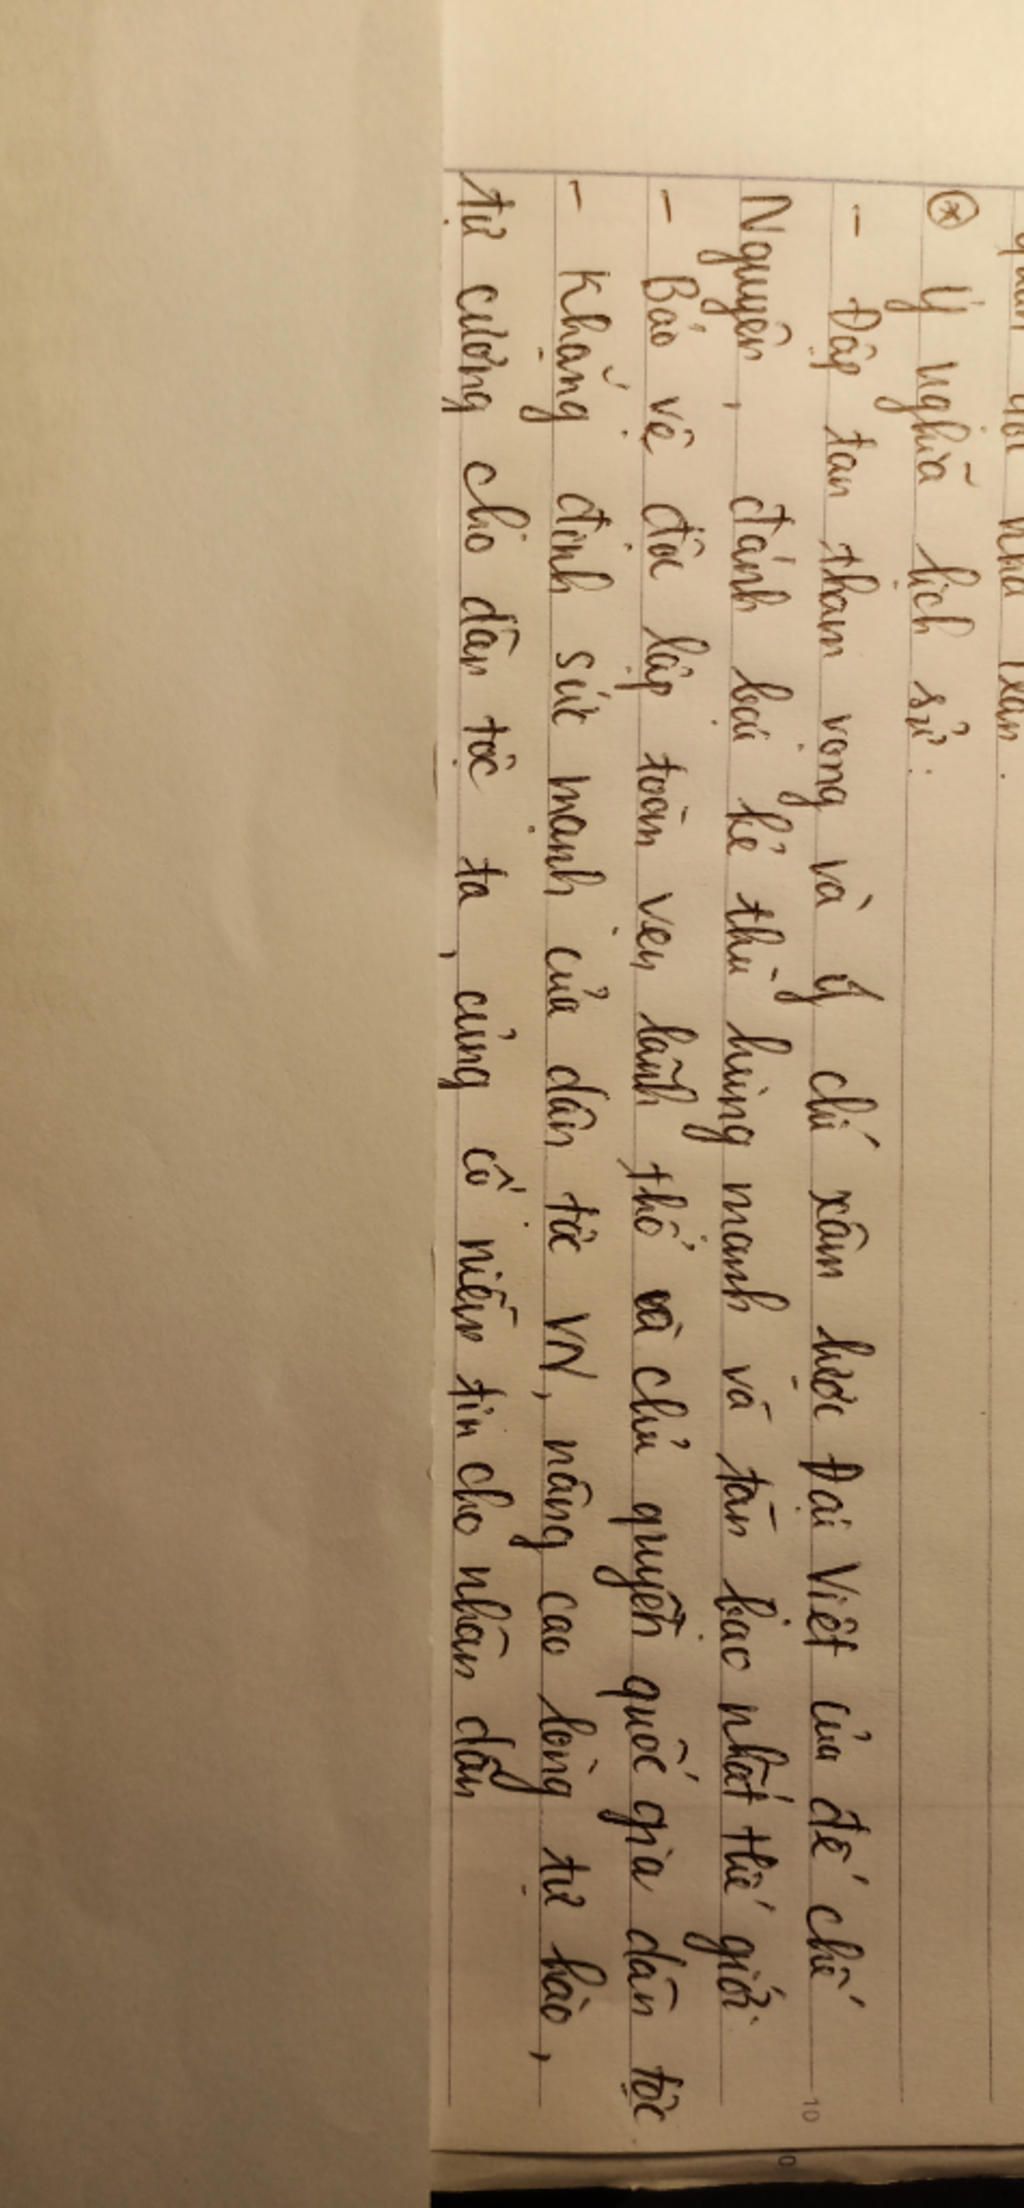 quân dân nhà Trần.
* Ý nghĩa lịch sử:
- Đập tan tham vọng và ý chí xâm lược Đại Việt của đế chế
Nguyên, đánh bại kẻ thù hùng mạnh và tàn bạo nhất thế giới.
- Bảo vệ độc lập toàn vẹn lãnh thổ và chủ quyền quốc gia dân tộc
- Khẳng định sức mạnh của dân tộc VN, nâng cao lòng tự hào,
tự cường cho dân tộc ta, củng cố niềm tin cho nhân dân
10